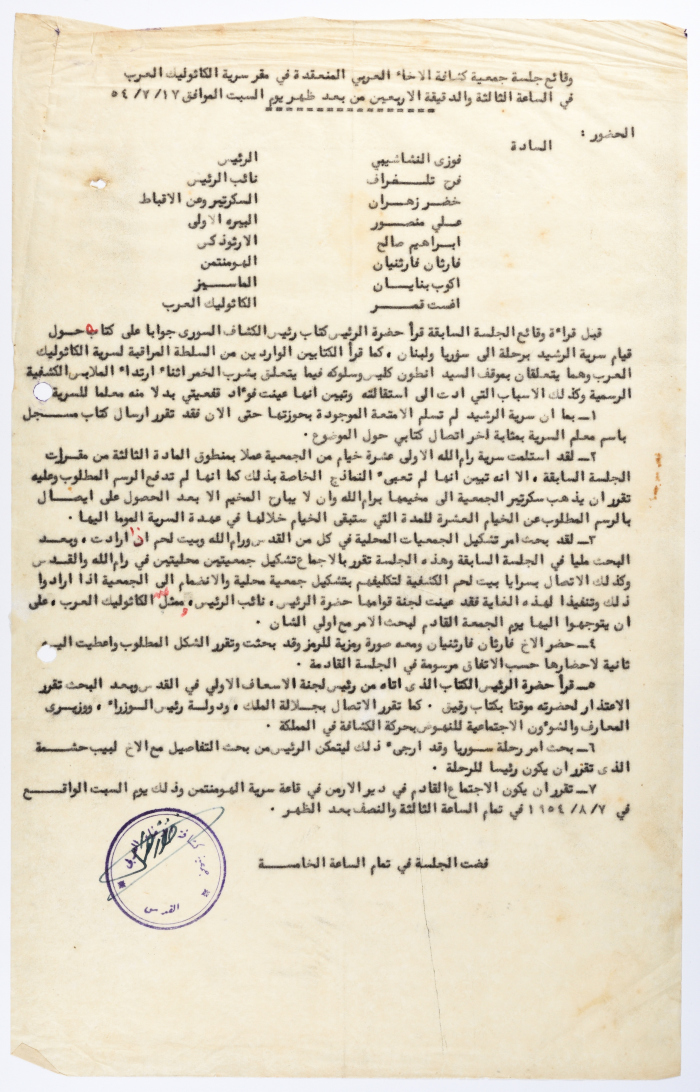 وقائع جلسة جمعية كشافة الاخاء العربي المنعقدة في مقر سرية الكاثوليك العرب
في الساعة الثالثة والدقيقة الاربعين من بعد ظهر يوم السبت الموافق ٥٤/٧/١٧
الحضور :
السادة
فوزى النشاشيبي الرئيس
فرح تلغراف نائب الرئيس
خضر زهران السكرتير وعن الاقباط
علي منصور البيره الاولى
ابراهيم صالح الارثوذكس
فارثان فارثنيان الهومنتمن
اكوب بنايان الماسيز
افست قمر الكاثوليك العرب
قبل قراءة وقائع الجلسة السابقة قرأ حضرة الرئيس كتاب رئيس الكشاف السورى جوابا على كتابه حول
قيام سرية الرشيد برحلة الى سوريا ولبنان ، كما قرأ الكتابين الواردين من السلطة المراقبة لسرية الكاثوليك
العرب وهما يتعلقان بموقف السيد انطون كليس وسلوكه فيما يتعلق بشرب الخمر اثناء ارتداء الملابس الكشفية
الرسمية وكذلك الاسباب التي ادت الى استقالته وتبين انها عينت فوءاد قفعيتي بدلا منه معلما للسرية
١ـ بما ان سرية الرشيد لم تسلم الامتعة الموجودة بحوزتها حتى الان فقد تقرر ارسال كتاب مسجل
باسم معلم السرية بمثابة اخر اتصال كتابي حول الموضوع .
٢ـ لقد استلمت سرية رام الله الاولى عشرة خيام من الجمعية عملا بمنطوق المادة الثالثة من مقررات
الجلسة السابقة ، الا انه تبين انها لم تعبىء النماذج الخاصة بذلك كما انها لم تدفع الرسم المطلوب وعليه
تقرر ان يذهب سكرتير الجمعية الى مخيمها برام الله وان لا يبارح المخيم الا بعد الحصول على ايصال
بالرسم المطلوب عن الخيام العشرة للمدة التي ستبقى الخيام خلالها في عهدة السرية الموما اليها .
٣ـ لقد بحث امر تشكيل الجمعيات المحلية في كل من القدس ورام الله وبيت لحم اذا ارادت ، وبعد
البحث مليا في الجلسة السابقة وهذه الجلسة تقرر بالاجماع تشكيل جمعيتين محليتين في رام الله والقدس
وكذلك الاتصال بسرايا بيت لحم الكشفية لتكليفهم بتشكيل جمعية محلية والانضمام الى الجمعية اذا ارادوا
ذلك وتنفيذا لهذه الغاية فقد عينت لجنة قوامها حضرة الرئيس ، نائب الرئيس ، وممثل الكاثوليك العرب ، على
ان يتوجهوا اليها يوم الجمعة القادم لبحث الامر مع اولي الشان .
٤ـ حضر الاخ فارثان فارثنيان ومعه صورة رمزية للرمز وقد بحثت وتقرر الشكل المطلوب واعطيت اليه
ثانية لاحضارها حسب الاتفاق مرسومة في الجلسة القادمة .
٥ـ قرأ حضرة الرئيس الكتاب الذى اتاه من رئيس لجنة الاسعاف الاولي في القدس وبعد البحث تقرر
الاعتذار لحضرته موقتا بكتاب رقيق . كما تقرر الاتصال بجلالة الملك ، ودولة رئيس الوزراء ، ووزيرى
المعارف والشوءون الاجتماعية للنهوض بحركة الكشافة في المملكة .
٦ـ بحث امر رحلة سوريا وقد ارجىء ذلك ليتمكن الرئيس من بحث التفاصيل مع الاخ لبيب حشمة
الذى تقرر ان يكون رئيسا للرحلة .
٧ـ تقرر ان يكون الاجتماع القادم في دير الارمن في قاعة سرية الهومنتمن وذلك يوم السبت الواقع
في ١٩٥٤/٨/٧ في تمام الساعة الثالثة والنصف بعد الظهر .
فضت الجلسة في تمام الساعة الخامسة
القدس